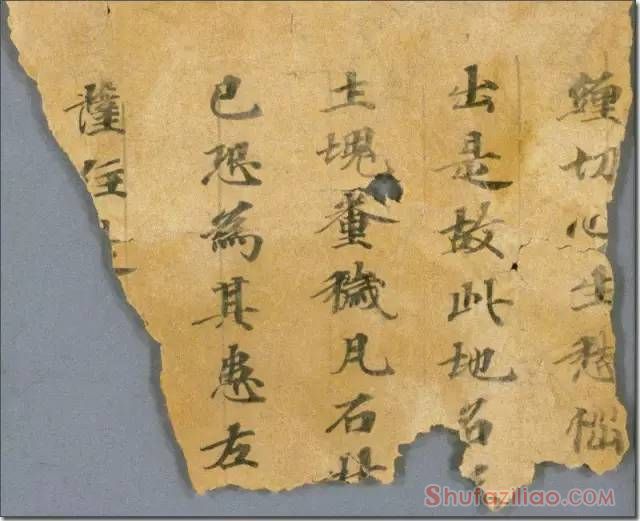 切心生愁惱
出是故此地名
土塊糞穢瓦石
已恐為其患左
薩住
Shufaziliao.com